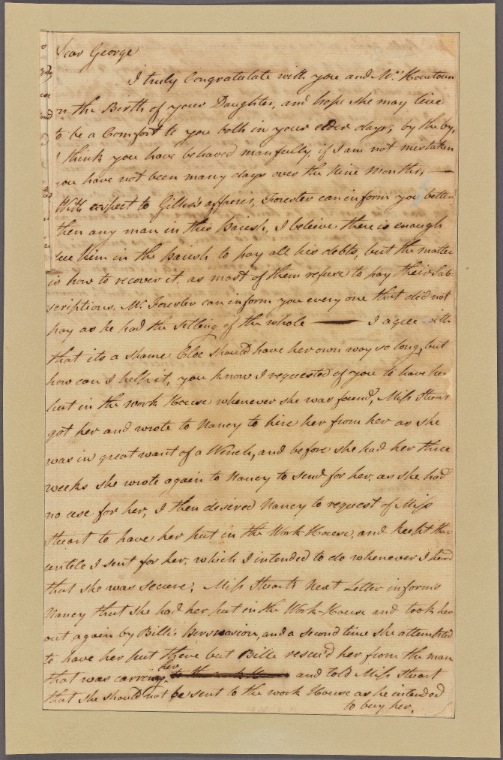 Dear George
I truly Congratulate with you and Mrs
on the Birth of your Daughter, and hope she may live
to be a Comfort to you both in your older days; by the by,
I think you have behaved manfully if I am not mistaken
you have not been many days over the Nine Months, —
With respect to affairs, Forester can inform you better
then any man in this Parish, I beleive there is enough
in the parish to pay all his debts, but the matter
is how to recover it, as most of them refuse to pay their Sub-
scriptions, Mr. Forester can inform you every one that did not
pay as he had the Setling of the whole — I agree with
that its a Shame Cloe should have her own way so long, but
how can I help it, you know I requested of you to have her
put in the work House whenever she was found, Miss Stuart
got her and wrote to Nancy to hire her from her as she
was in great want of a Wench, and before she had her three
weeks she wrote again to Nancy to send for her, as she had
no use for her, I then desired Nancy to request of Miss
Stuart to have her put in the Work-House, and keept there
untile I sent for her, which I intended to do whenever I heard
that she was secure; Miss Stuarts Next Letter informs
Nancy that she had her put in the Work-House and took her
out again by Bill's Perswasion, and a second time she attempted
to have her put there but Bill rescu'd her from the man
that was carrying her and told Miss Stuart
that she should not be sent to the work House as he intended
to buy her.